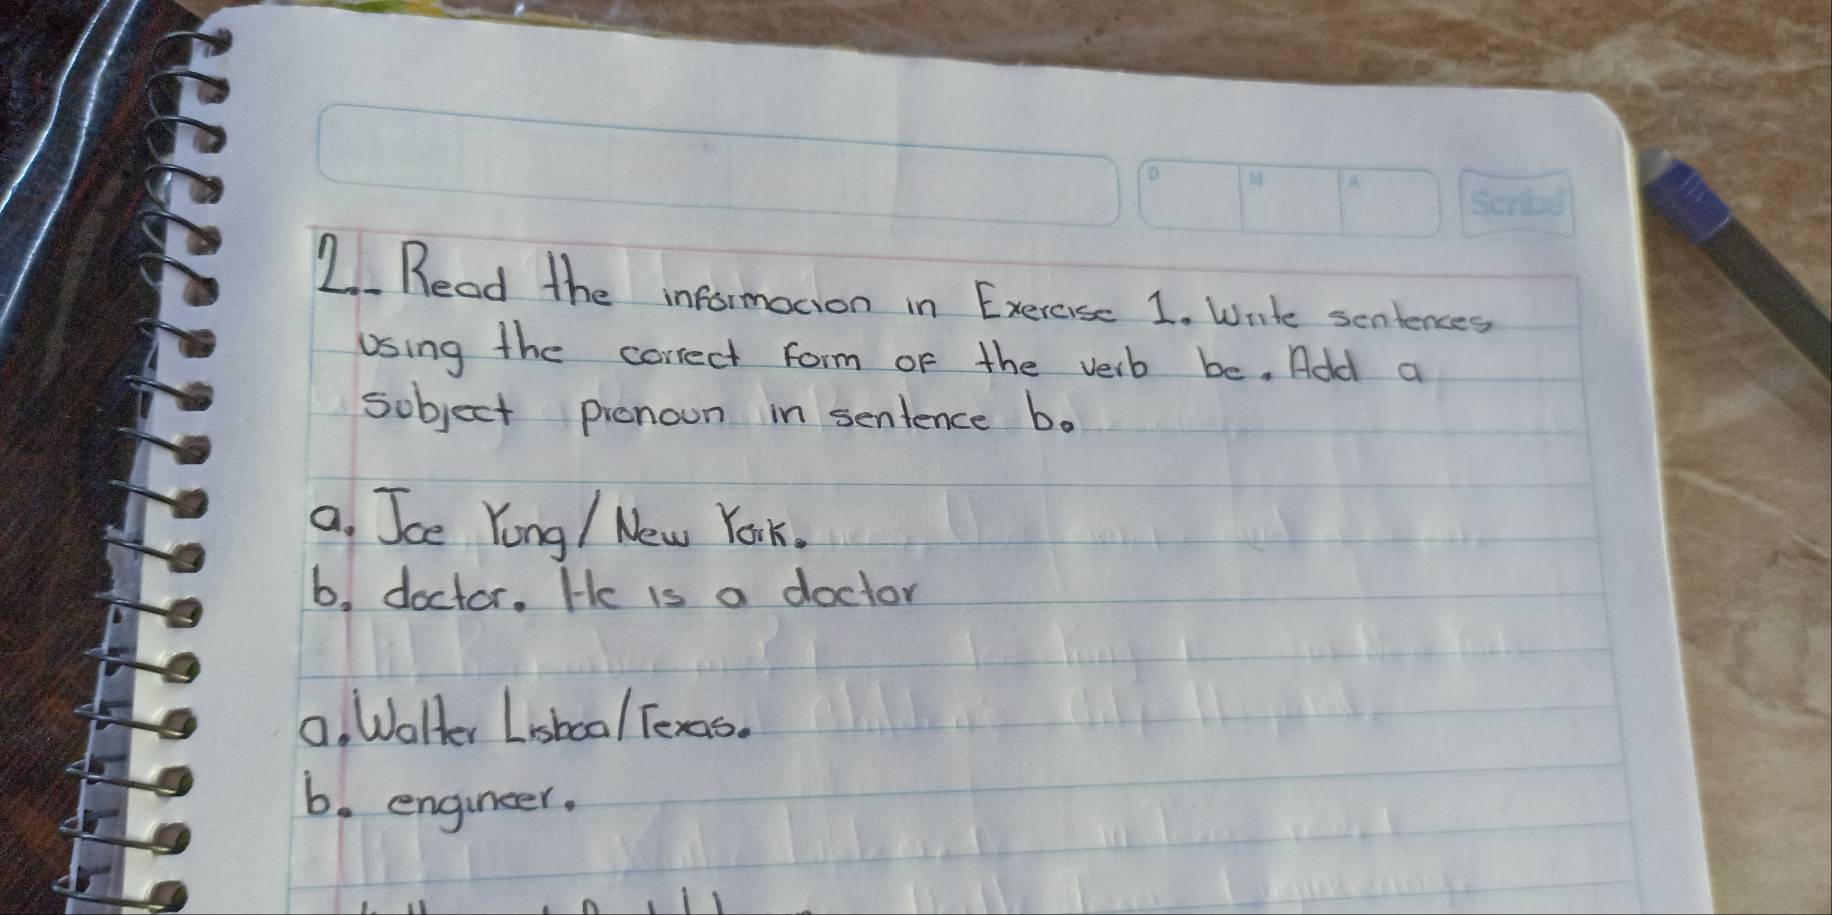 D M A Scribe
2.- Read the informacion in Exercise 1. Write sentences
using the correct form of the verb be. Add a
subject pronoun in sentence b.
a. Joe Yung/New York.
b. doctor. He is a doctor
a. Walter Lisboa/Texas.
b. engineer.